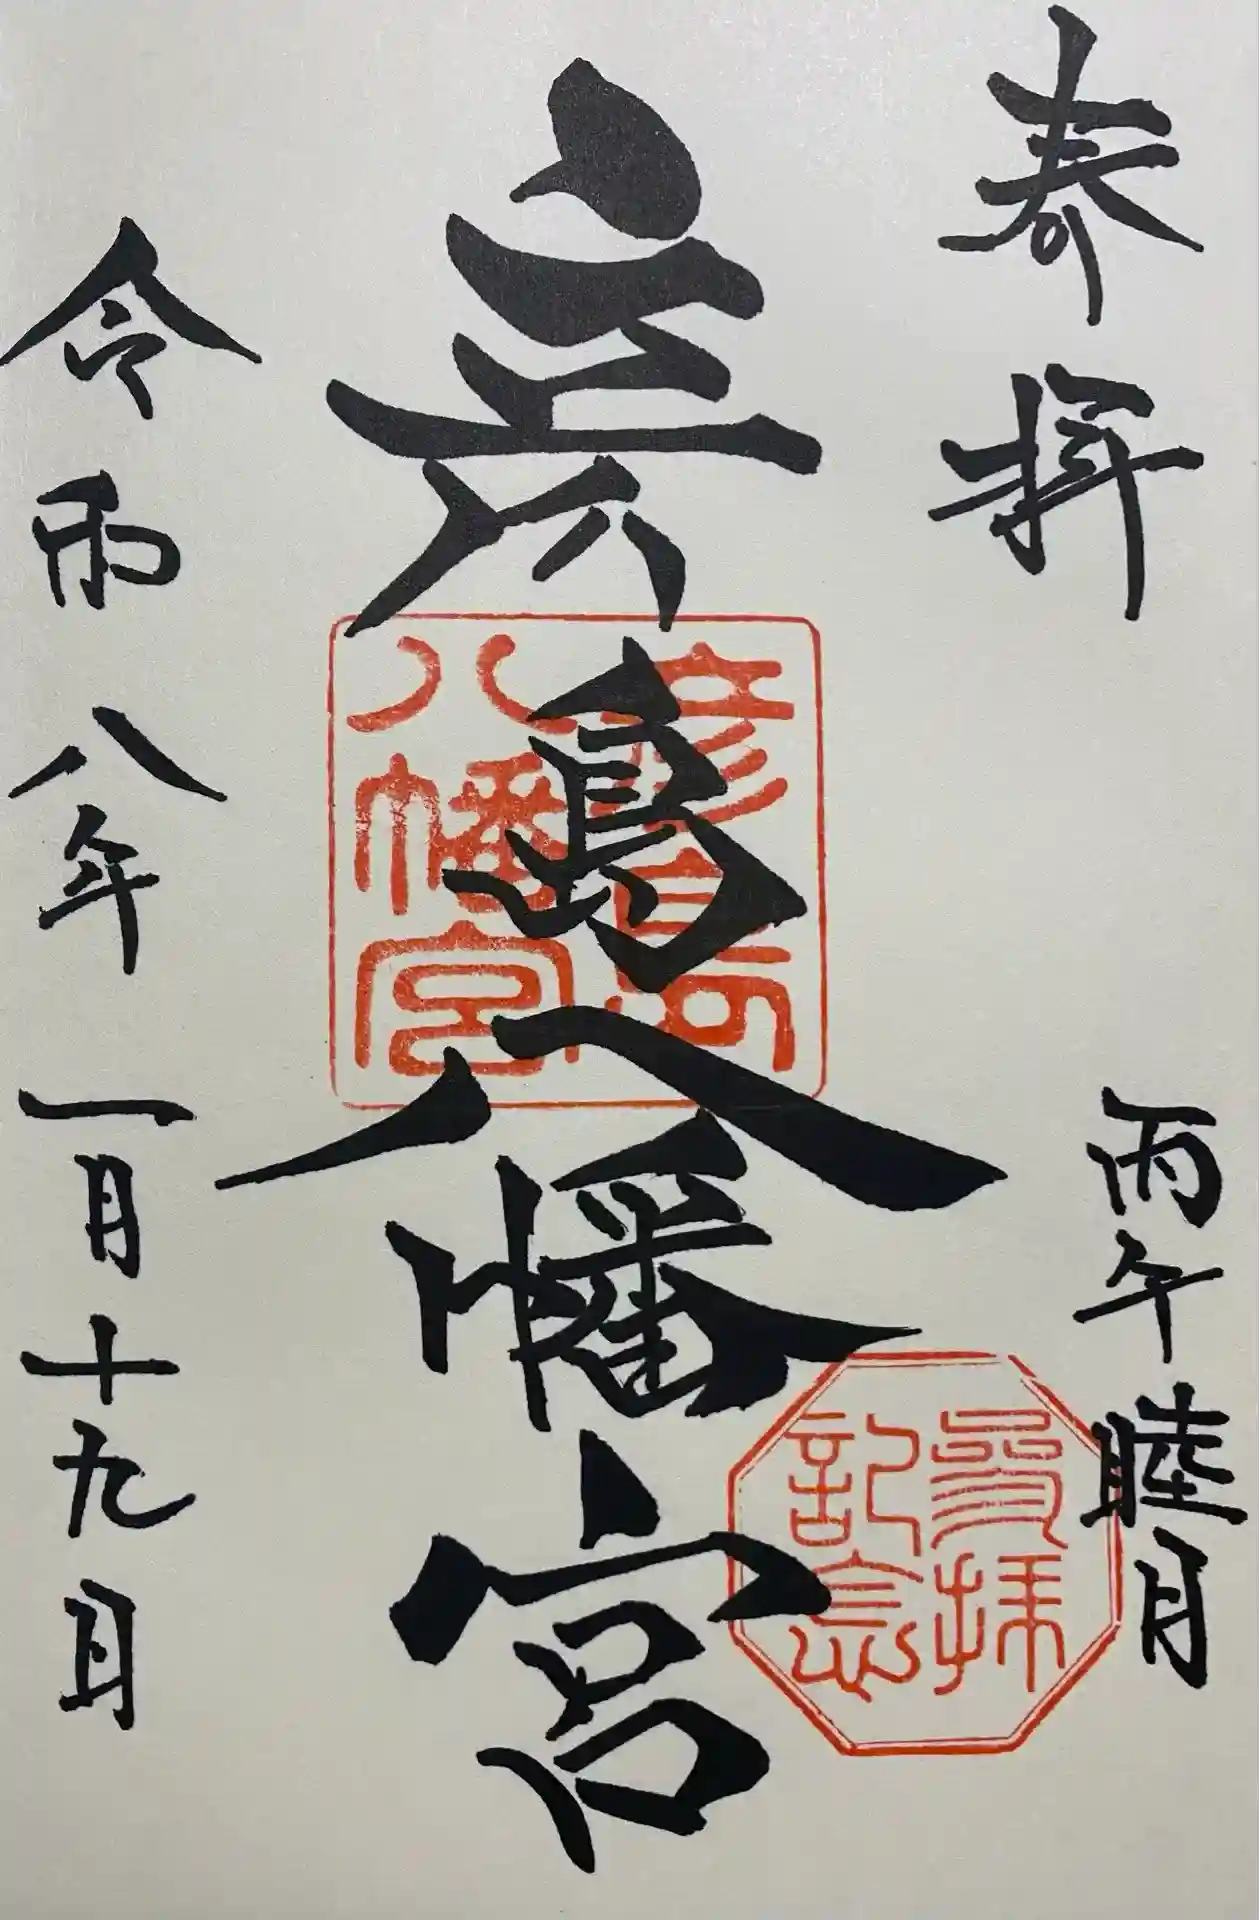 奉拝
丙午睦月
彦島八幡宮
彦島
八幡宮
参拝
記念
令和八年一月十九日